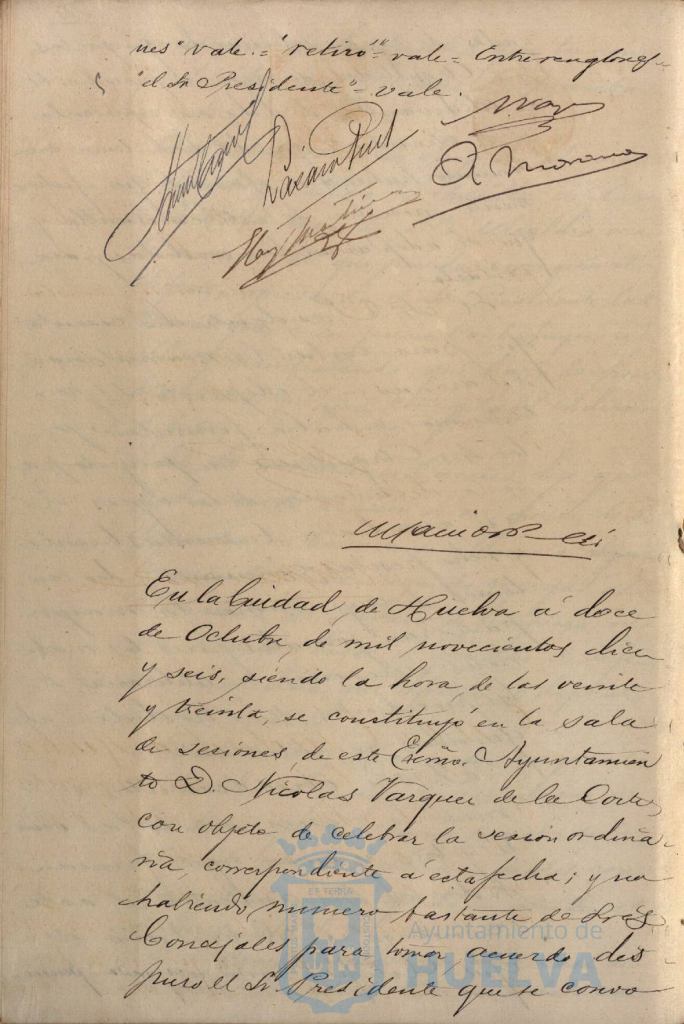 nes" vale = "retiro" = vale = Entrerenglones =
"el Sr Presidente" = vale.
A. Moreno
En la Ciudad, de Huelva á doce
de Octubre, de mil novecientos diez
y seis, siendo la hora, de las veinte
y treinta, se constituyó en la sala
de sesiones, de este Excmo. Ayuntamien
to D. Nicolas Vazquez de la Corte,
con objeto de celebrar la sesion ordina-
ria, correspondiente á esta fecha; y no
habiendo, numero bastante de Sres,
Concejales para tomar acuerdo dis
puso el Sr Presidente que se convo
Ayuntamiento de
HUELVA